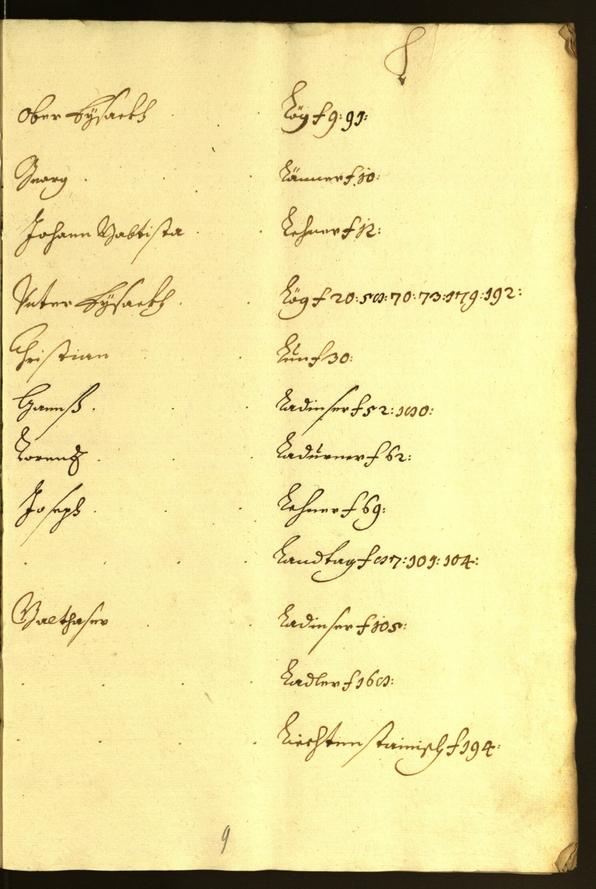 L
Ober Eysackh Lög f 9: 91:
Georg Länner f 10:
Johann Babtista Lehner f 12:
Unter Eysackh Lög f 20: 58: 70: 73: 179: 192:
Christian Lun f 30:
Hannß Ladinser f 52: 180:
Lorenz Ladurner f 62:
Joseph Lehner f 69:
Landtag f 87: 101: 104:
Balthasar Ladinser f 105:
Ladler f 168:
Liechtenstainisch f 194:
9